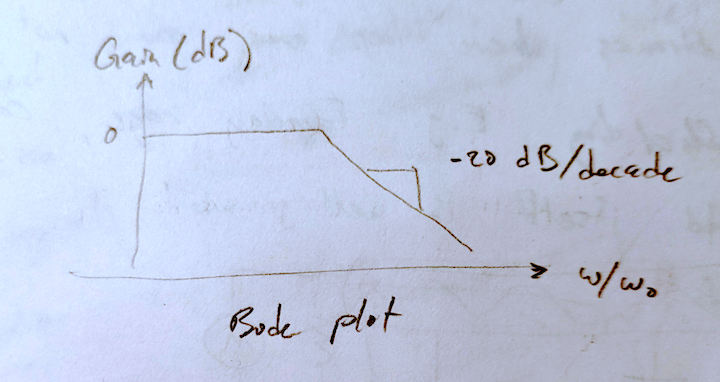 Gain (dB)
0
-20 dB/decade
ω/ω₀
Bode plot